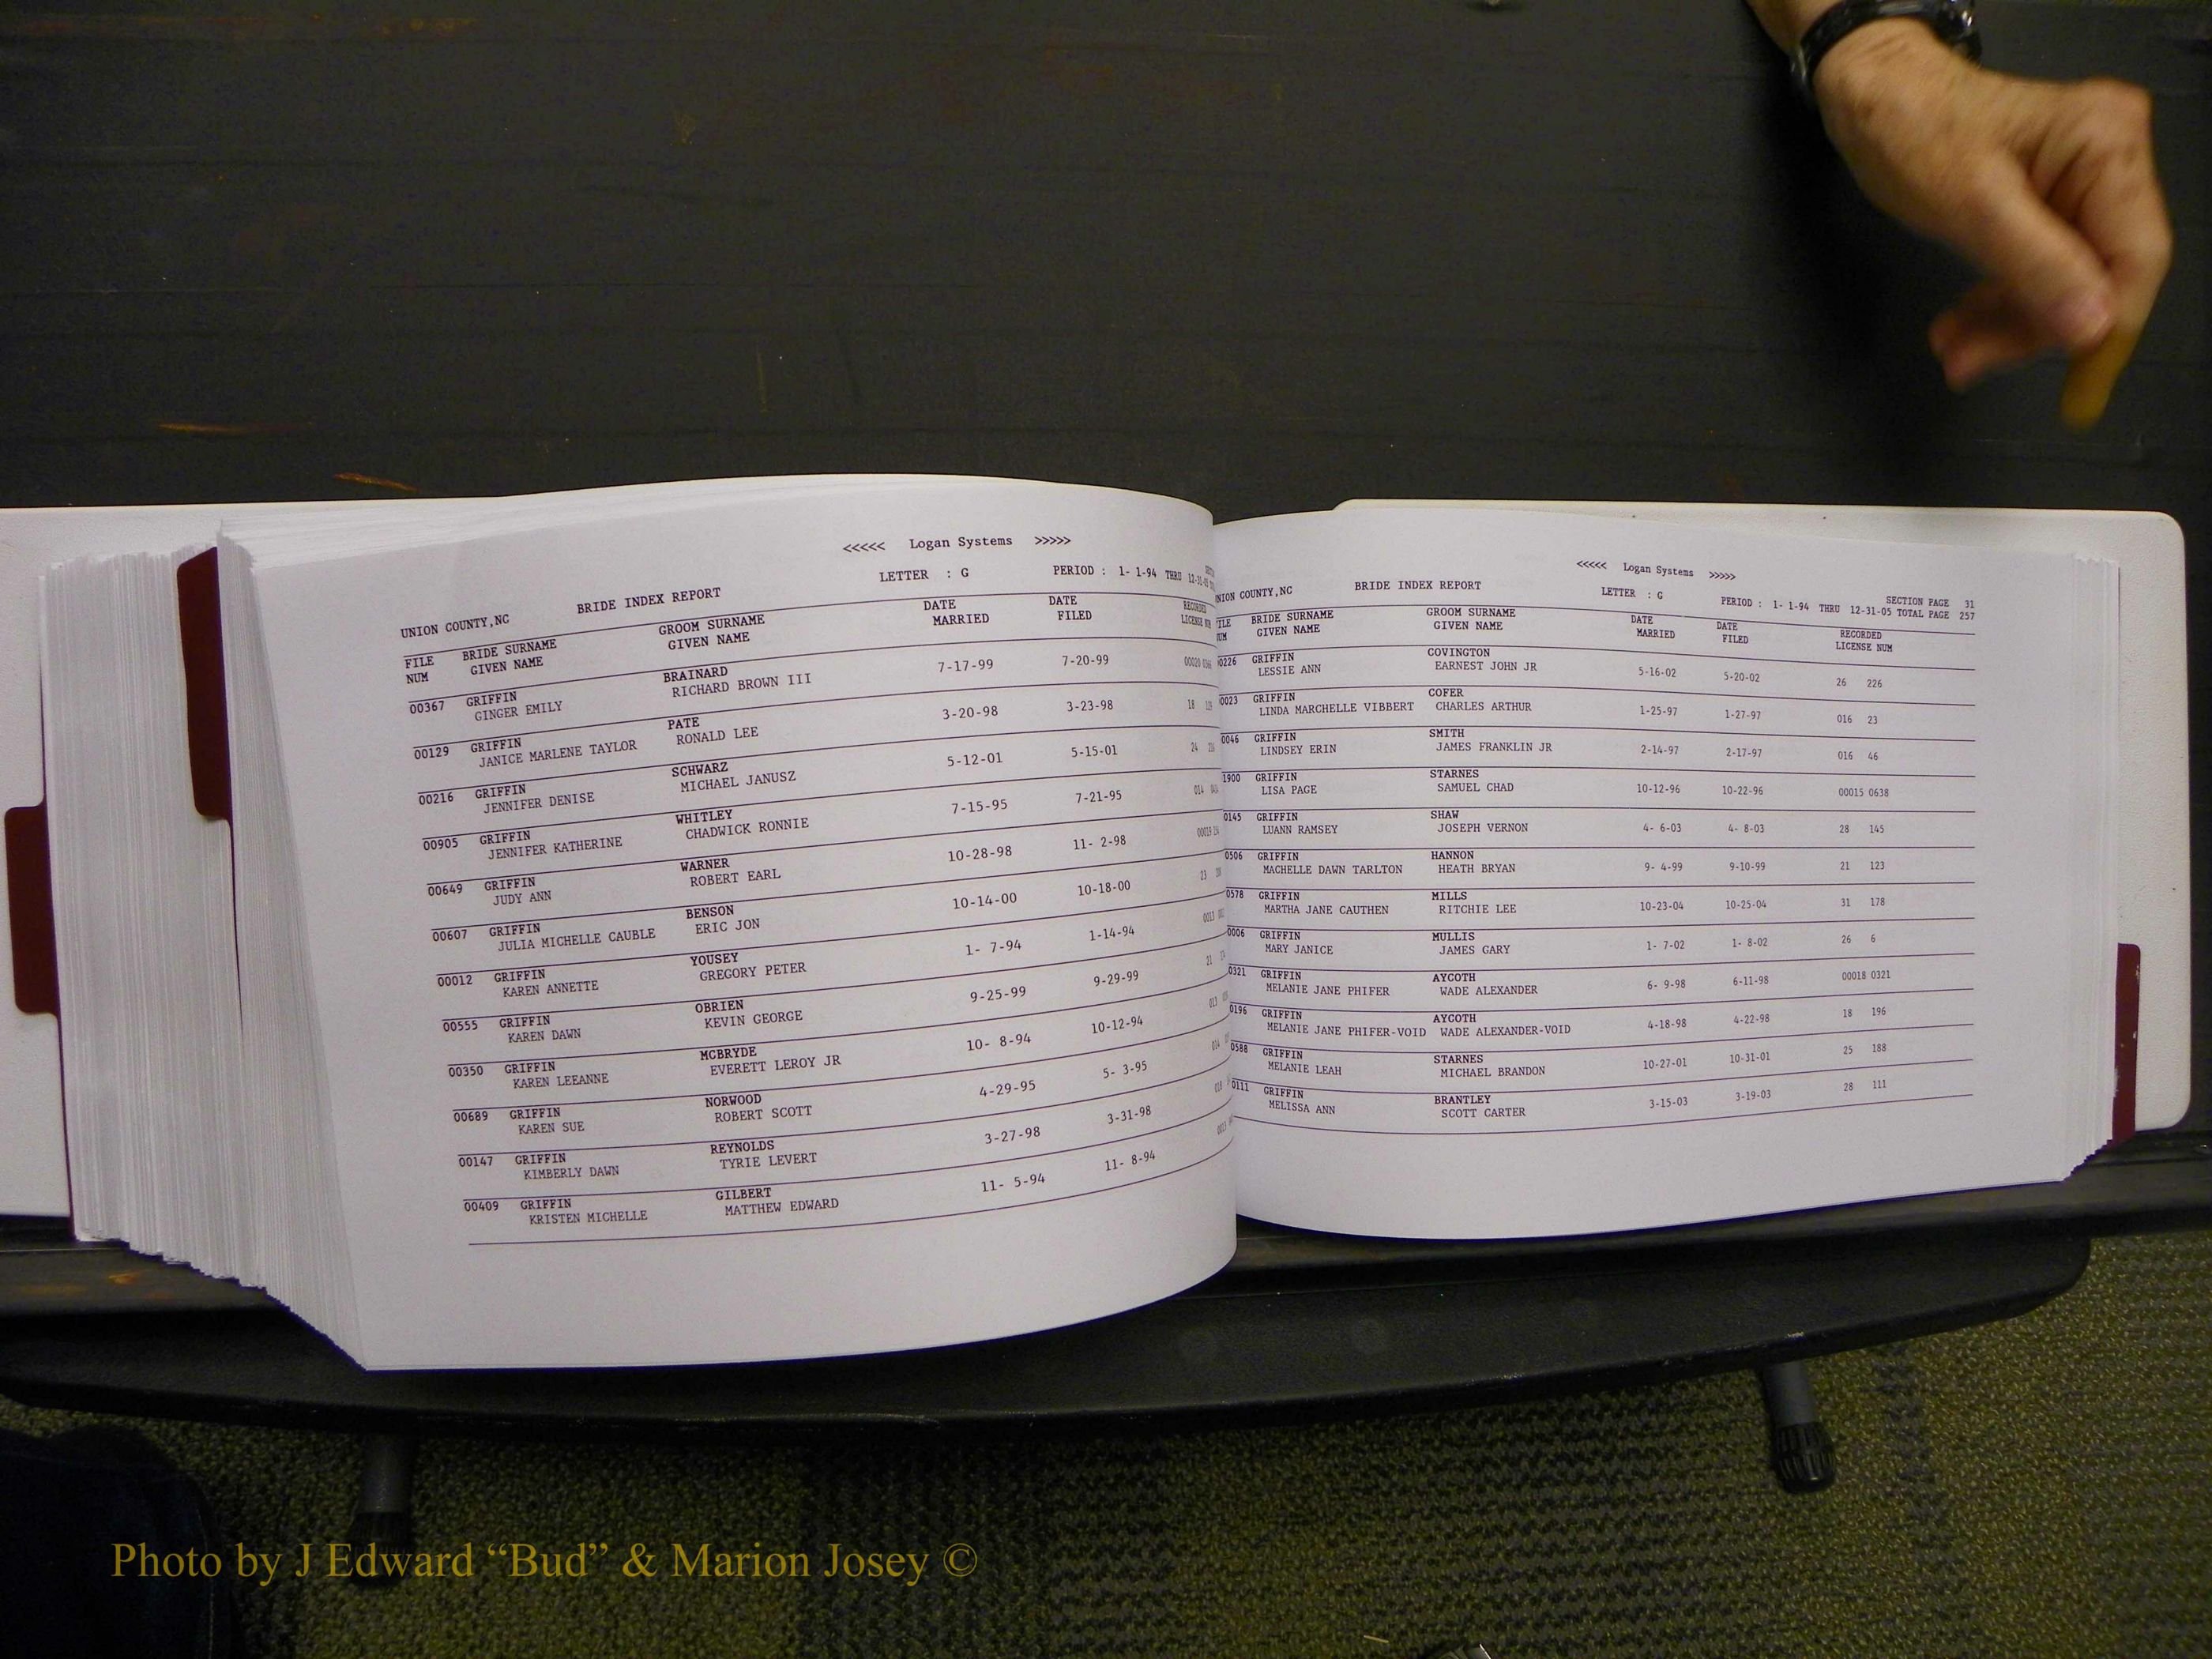 <<<<< Logan Systems >>>>>
UNION COUNTY,NC BRIDE INDEX REPORT LETTER : G PERIOD : 1- 1-94 THRU
FILE BRIDE SURNAME GROOM SURNAME DATE DATE RECORDED
NUM GIVEN NAME GIVEN NAME MARRIED FILED LICENSE
00367 GRIFFIN BRAINARD 7-17-99 7-20-99
GINGER EMILY RICHARD BROWN III
00129 GRIFFIN PATE 3-20-98 3-23-98 18
JANICE MARLENE TAYLOR RONALD LEE
00216 GRIFFIN SCHWARZ 5-12-01 5-15-01 24
JENNIFER DENISE MICHAEL JANUSZ
00905 GRIFFIN WHITLEY 7-15-95 7-21-95 014
JENNIFER KATHERINE CHADWICK RONNIE
00649 GRIFFIN WARNER 10-28-98 11- 2-98
JUDY ANN ROBERT EARL
00607 GRIFFIN BENSON 10-14-00 10-18-00 23
JULIA MICHELLE CAUBLE ERIC JON
00012 GRIFFIN YOUSEY 1- 7-94 1-14-94 0013
KAREN ANNETTE GREGORY PETER
00555 GRIFFIN OBRIEN 9-25-99 9-29-99 21
KAREN DAWN KEVIN GEORGE
00350 GRIFFIN MCBRYDE 10- 8-94 10-12-94 013
KAREN LEEANNE EVERETT LEROY JR
00689 GRIFFIN NORWOOD 4-29-95 5- 3-95 014
KAREN SUE ROBERT SCOTT
00147 GRIFFIN REYNOLDS 3-27-98 3-31-98 018
KIMBERLY DAWN TYRIE LEVERT
00409 GRIFFIN GILBERT 11- 5-94 11- 8-94 0013
KRISTEN MICHELLE MATTHEW EDWARD
<<<<< Logan Systems >>>>>
SECTION PAGE 31
NION COUNTY,NC BRIDE INDEX REPORT LETTER : G PERIOD : 1- 1-94 THRU 12-31-05 TOTAL PAGE 257
ILE BRIDE SURNAME GROOM SURNAME DATE DATE RECORDED
UM GIVEN NAME GIVEN NAME MARRIED FILED LICENSE NUM
0226 GRIFFIN COVINGTON 5-16-02 5-20-02 26 226
LESSIE ANN EARNEST JOHN JR
0023 GRIFFIN COFER 1-25-97 1-27-97 016 23
LINDA MARCHELLE VIBBERT CHARLES ARTHUR
0046 GRIFFIN SMITH 2-14-97 2-17-97 016 46
LINDSEY ERIN JAMES FRANKLIN JR
1900 GRIFFIN STARNES 10-12-96 10-22-96 00015 0638
LISA PAGE SAMUEL CHAD
0145 GRIFFIN SHAW 4- 6-03 4- 8-03 28 145
LUANN RAMSEY JOSEPH VERNON
0506 GRIFFIN HANNON 9- 4-99 9-10-99 21 123
MACHELLE DAWN TARLTON HEATH BRYAN
0578 GRIFFIN MILLS 10-23-04 10-25-04 31 178
MARTHA JANE CAUTHEN RITCHIE LEE
0006 GRIFFIN MULLIS 1- 7-02 1- 8-02 26 6
MARY JANICE JAMES GARY
0321 GRIFFIN AYCOTH 6- 9-98 6-11-98 00018 0321
MELANIE JANE PHIFER WADE ALEXANDER
0196 GRIFFIN AYCOTH 4-18-98 4-22-98 18 196
MELANIE JANE PHIFER-VOID WADE ALEXANDER-VOID
0588 GRIFFIN STARNES 10-27-01 10-31-01 25 188
MELANIE LEAH MICHAEL BRANDON
0111 GRIFFIN BRANTLEY 3-15-03 3-19-03 28 111
MELISSA ANN SCOTT CARTER
Photo by J Edward “Bud” & Marion Josey ©